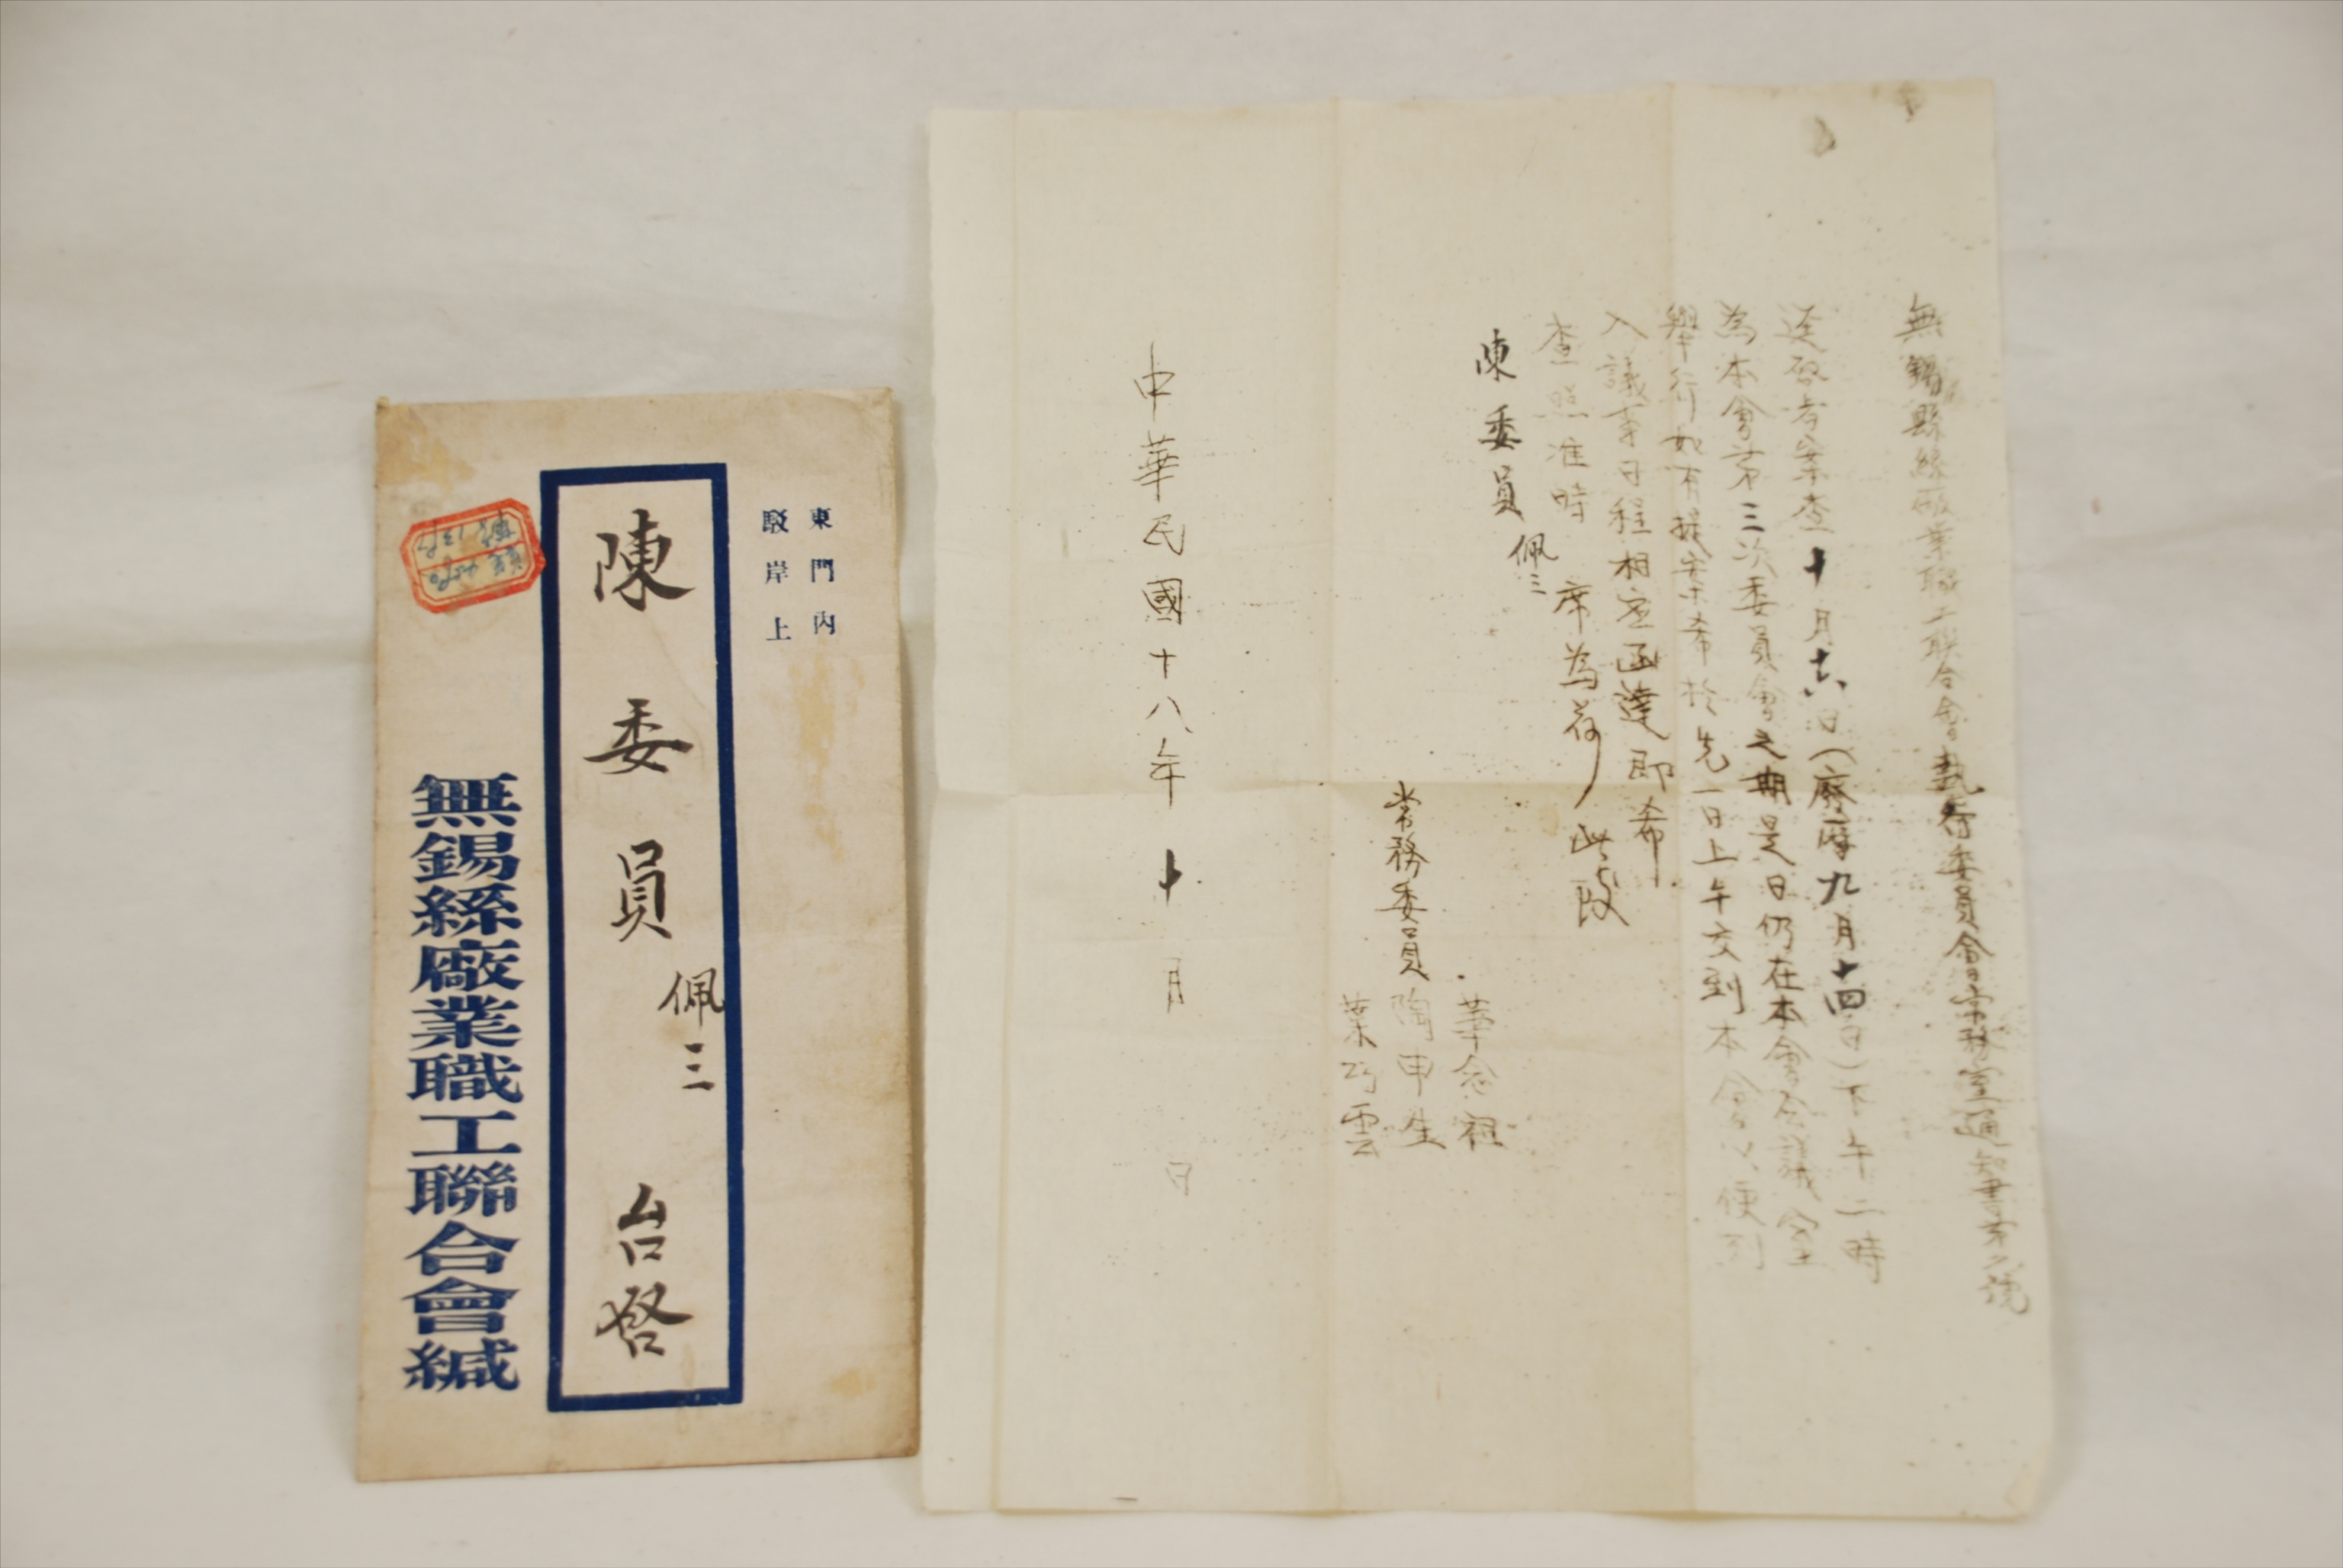 東門內
駁岸上
陳委員佩三 台啓
無錫絲廠業職工聯合會緘
無錫縣絲廠業職工聯合會執行委員會常務室通知書第 號
逕啟者案查十月十六日(廢曆九月十四日)下午二時
為本會第三次委員會之期是日仍在本會會議室
舉行如有提案希於先一日上午交到本會以便列
入議事日程相應函達即希
查照准時 席為荷此致
陳委員佩三
常務委員
華念祖
陶申生
葉巧雲
中華民國十八年十月 日